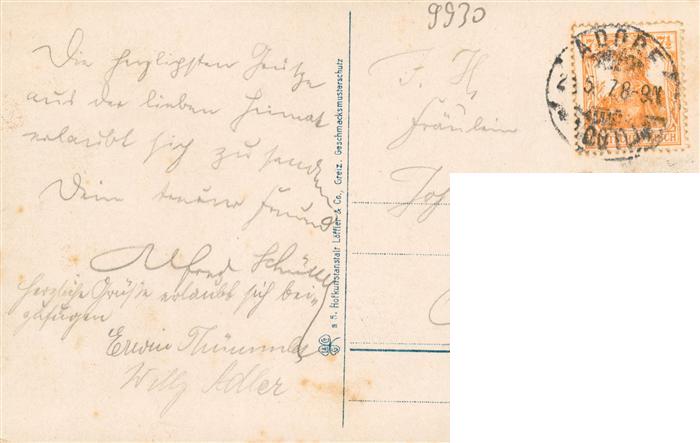 9930
Die herzlichsten Grüße
aus der lieben Heimat
erlaubt sich zu senden
Dein treuer Freund
Alfred
herzliche Grüße erlaubt sich bei-
zufügen
Erwin Thümmler
Willy Adler
Löffler & Co., Greiz. Geschmacksmusterschutz
Hofkunstanstalt
F. H.
Fräulein
Joh
ADORF
7.8-9V